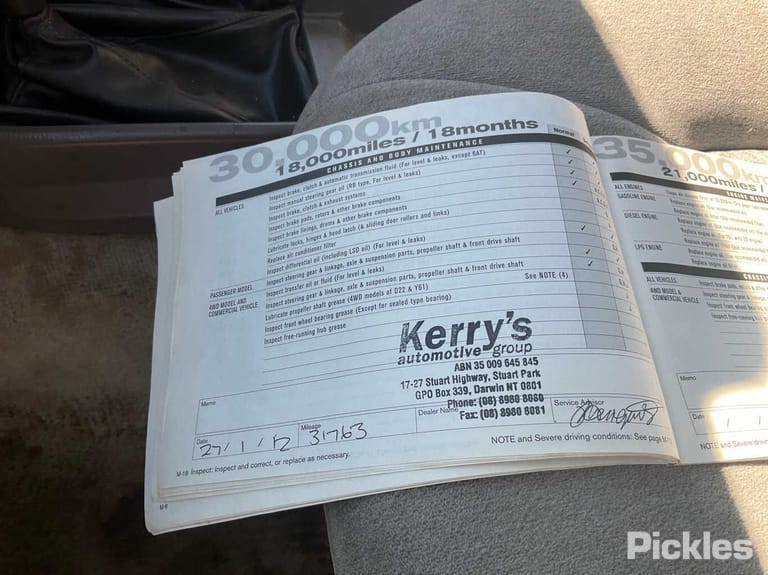 30,000km
18,000miles / 18months
CHASSIS AND BODY MAINTENANCE
Normal
ALL VEHICLES
Inspect brake, clutch & automatic transmission fluid (For level & leaks, except 6AT)
Inspect manual steering gear oil (RB type, For level & leaks)
Inspect brake, clutch & exhaust systems
Inspect brake pads, rotors & other brake components
Inspect brake linings, drums & other brake components
Lubricate locks, hinges & hood latch (& sliding door rollers and links)
Replace air conditioner filter
Inspect differential oil (including LSD oil) (For level & leaks)
PASSENGER MODEL
Inspect steering gear & linkage, axle & suspension parts, propeller shaft & front drive shaft
4WD MODEL AND
COMMERCIAL VEHICLE
Inspect transfer oil or fluid (For level & leaks)
Inspect steering gear & linkage, axle & suspension parts, propeller shaft & front drive shaft
Lubricate propeller shaft grease (4WD models of D22 & Y61)
See NOTE (4)
Inspect front wheel bearing grease (Except for sealed type bearing)
Inspect free-running hub grease
Kerry's
automotive group
ABN 35 009 645 845
17-27 Stuart Highway, Stuart Park
GPO Box 339, Darwin NT 0801
Phone: (08) 8980 8060
Fax: (08) 8980 8081
Memo
Dealer Name
Service Advisor
Date
27/1/12
Mileage
31763
NOTE and Severe driving conditions: See page
M-18 Inspect: Inspect and correct, or replace as necessary.
35,000km
21,000miles /
ENGINE MAIN
ALL ENGINES
GASOLINE ENGINE
DIESEL ENGINE
LPG ENGINE
CHASSI
ALL VEHICLES
4WD MODEL &
COMMERCIAL VEHICLE
Memo
Date
/ /
NOTE and Severe driving
Pickles